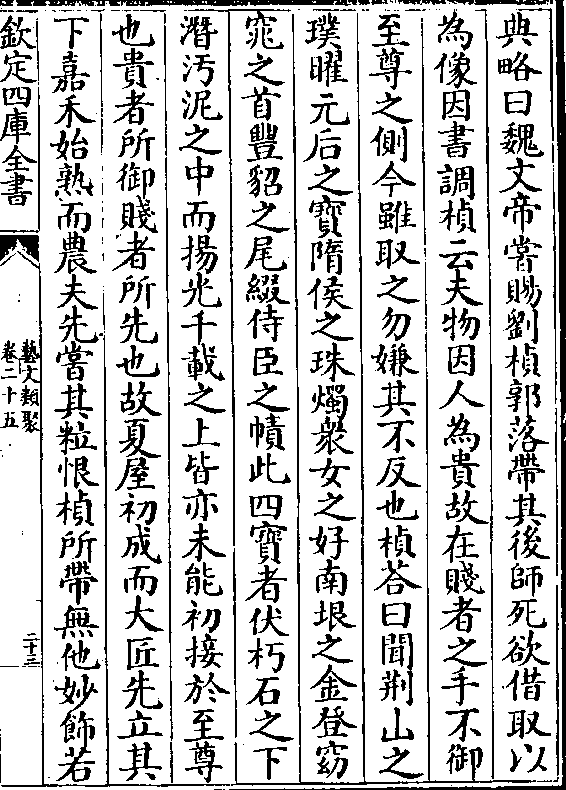 典略曰魏文帝嘗賜劉楨郭落帶其後師死欲借取以
為像因書調楨云夫物因人為貴故在賤者之手不御
至尊之側今雖取之勿嫌其不反也楨荅曰聞荆山之
璞曜元后之寳隋侯之珠燭衆女之好南垠之金登窈
窕之首豐貂之尾綴侍臣之幘此四寳者伏朽石之下
潛汚泥之中而揚光千載之上皆亦未能初接於至尊
也貴者所御賤者所先也故夏屋初成而大匠先立其
下嘉禾始熟而農夫先嘗其粒恨楨所帶無他妙飾若
欽定四庫全書
藝文類聚
卷二十五
二十三